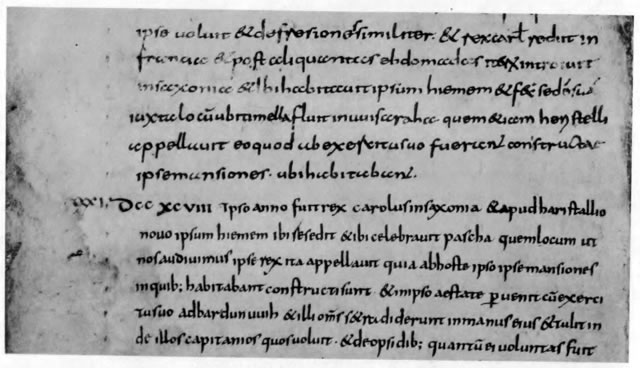 ipse voluit & de fresiones similiter. & rex carł rediit in
francia & post aliquantas ebdomadas iterum introivit
in saxonia & ibi habitavit ipsum hiemem & fec sed suā
iuxta locū ubi timella fluit in uuiseraha quem &iam heristelli
appellavit eo quod ab exercitu suo fuerant constructae
ipse mansiones. ubi habitabant.
xxxi. DCCXCVIII Ipso anno fuit rex carolus in saxonia & apud haristallio
novo ipsum hiemem ibi se sedit & ibi celebravit pascha quem locum ut
nos audivimus ipse rex ita appellavit quia ab hoste ipso ipse mansiones
in quib; habitabant constructi sunt & in ipso aestate pervenit cū exerci
tu suo ad bardunuuih & illi oms se & reddiderunt in manus eius & tulit in
de illos capitanios quos voluit. & de opsidib; quantū ei voluntas fuit